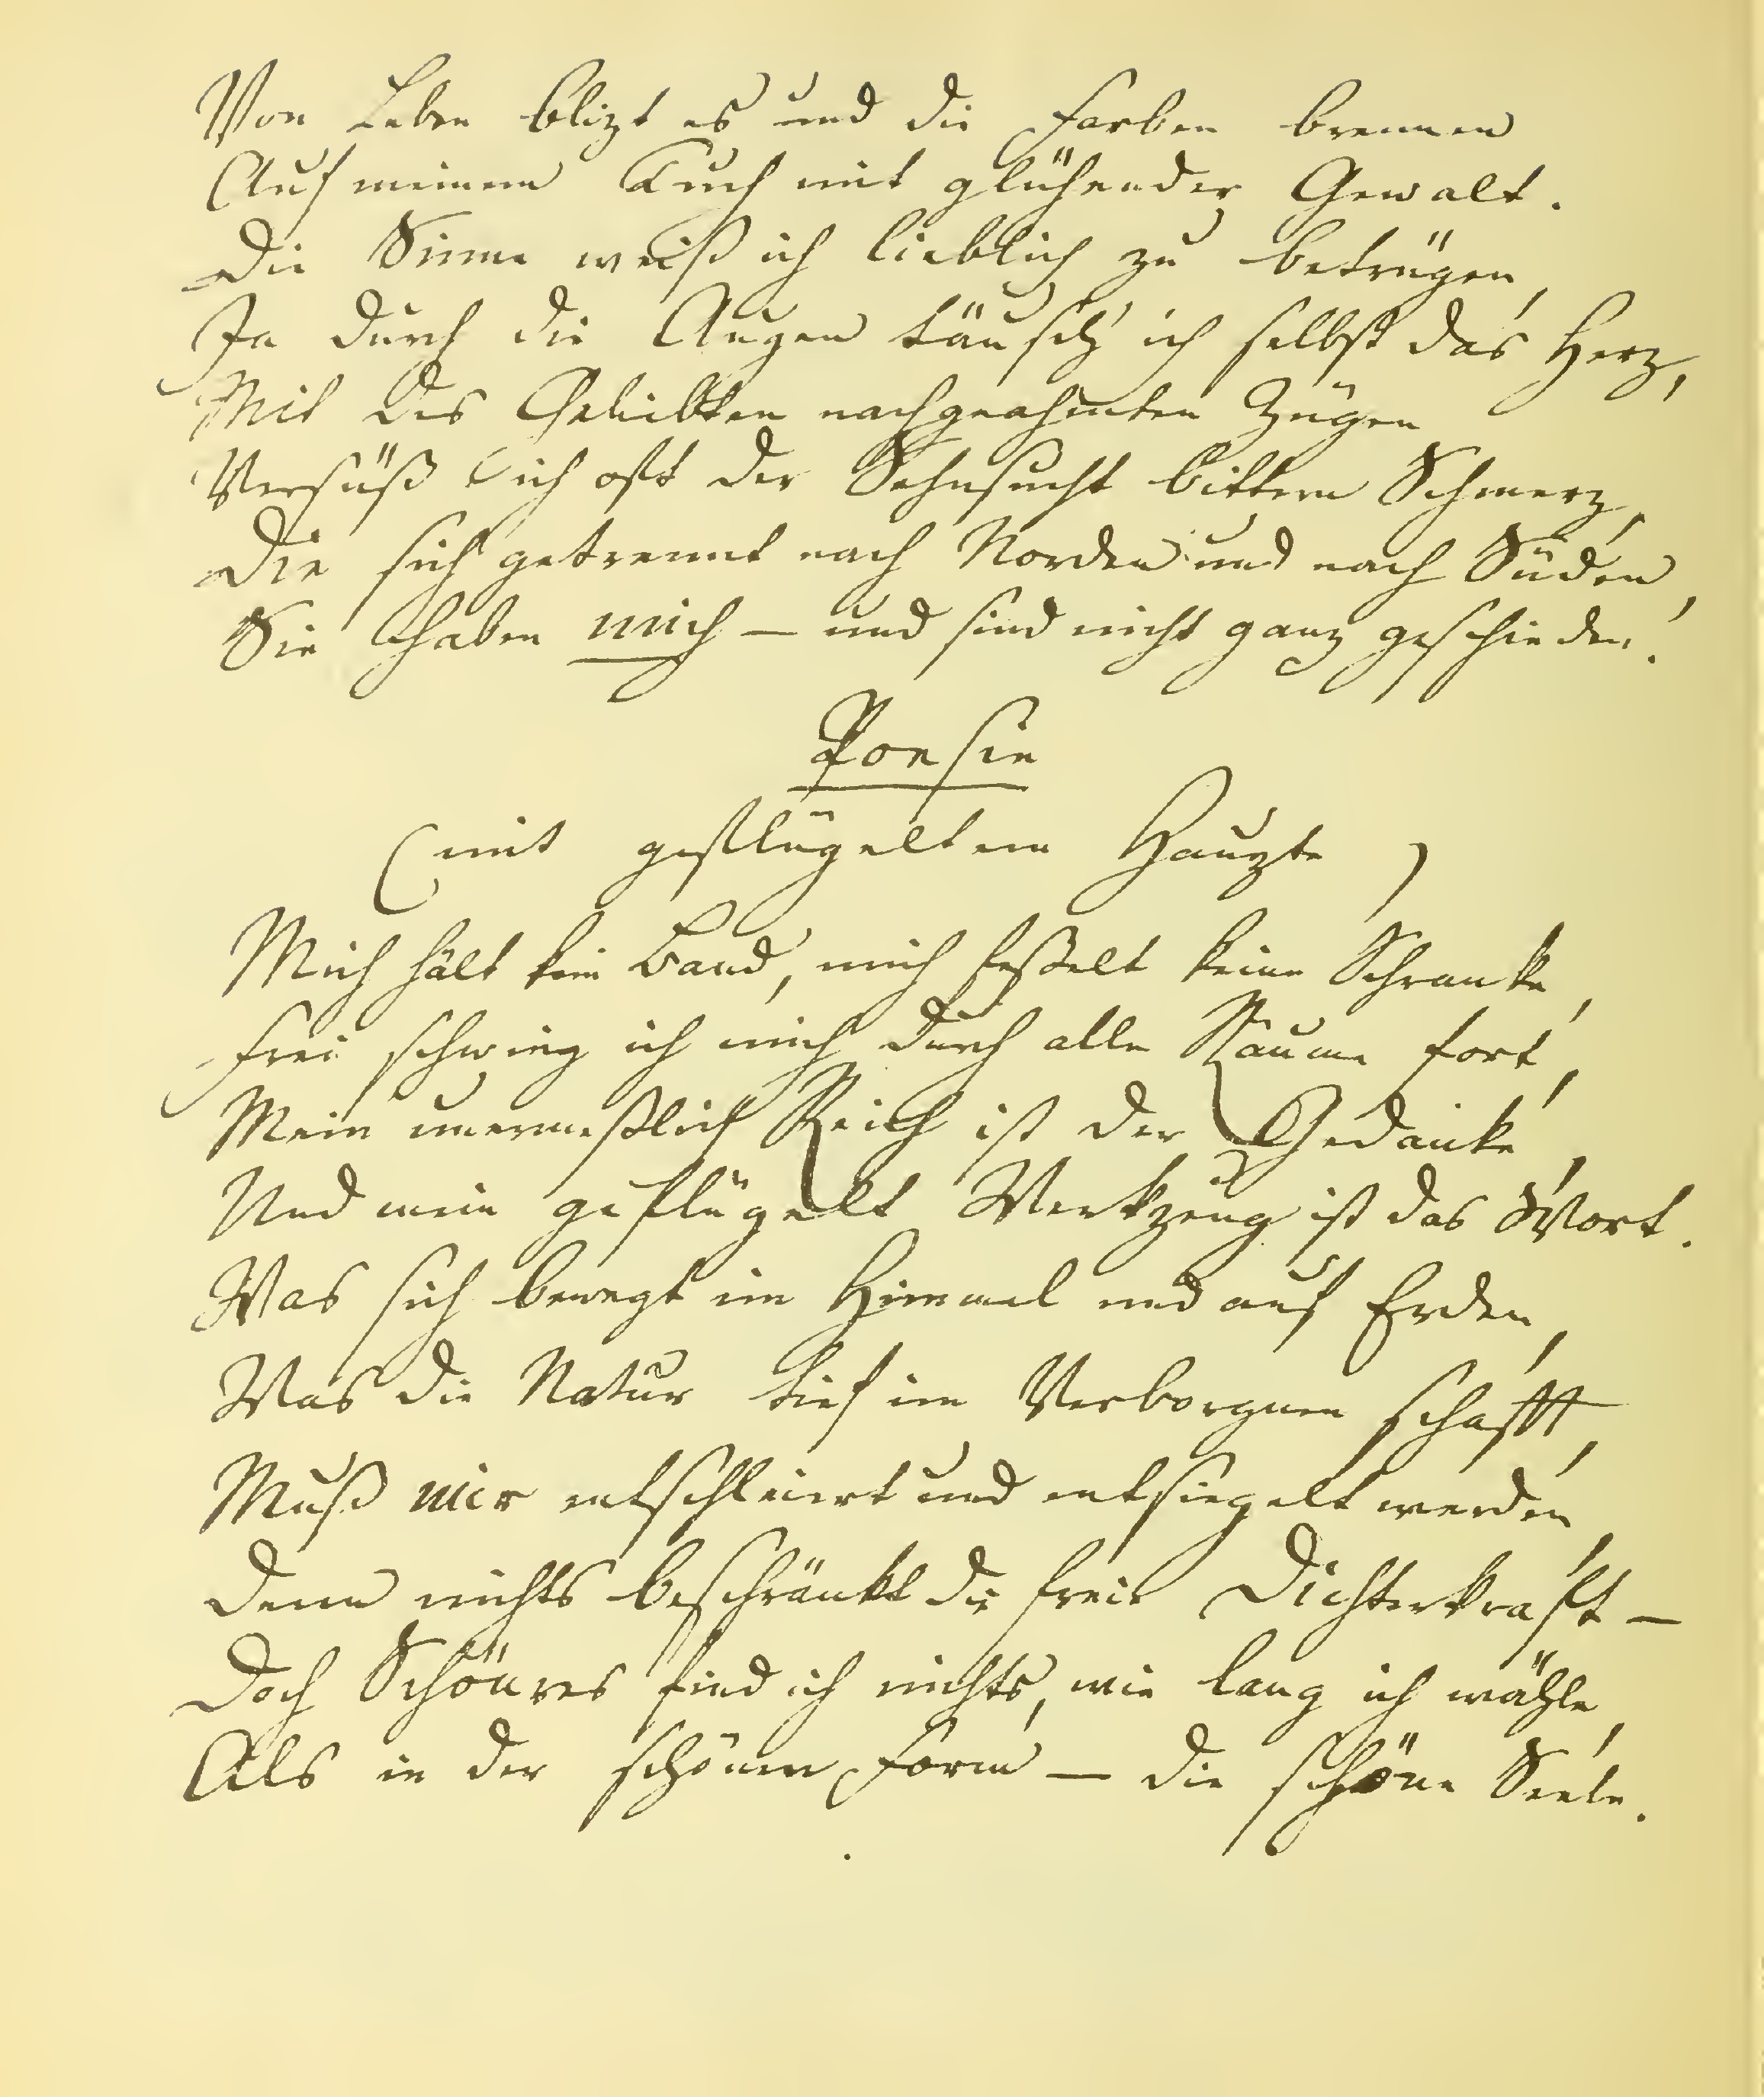 Von Leben blizt es und die Farben brennen
Auf meinem Tuch mit glühender Gewalt.
Die Sinne weiß ich lieblich zu betrügen,
Ja durch die Augen täusch ich selbst das Herz,
Mit des Geliebten nachgeahmten Zügen
Versüß ich oft der Sehnsucht bittern Schmerz,
Die sich getrennt nach Norden und nach Süden,
Sie haben mich – und sind nicht ganz geschieden.
Poesie
(mit geflügeltem Haupte)
Mich hält kein Band, mich feßelt keine Schranke,
Frei schwing ich mich durch alle Räume fort,
Mein unermeßlich Reich ist der Gedanke,
Und mein geflügelt Werkzeug ist das Wort.
Was sich bewegt im Himmel und auf Erden,
Was die Natur tief im Verborgnen schafft,
Muß mir entschleiert und entsiegelt werden,
Denn nichts beschränkt die freie Dichterkraft –
Doch Schönres find ich nichts, wie lang ich wähle,
Als in der schönen Form – die schöne Seele.